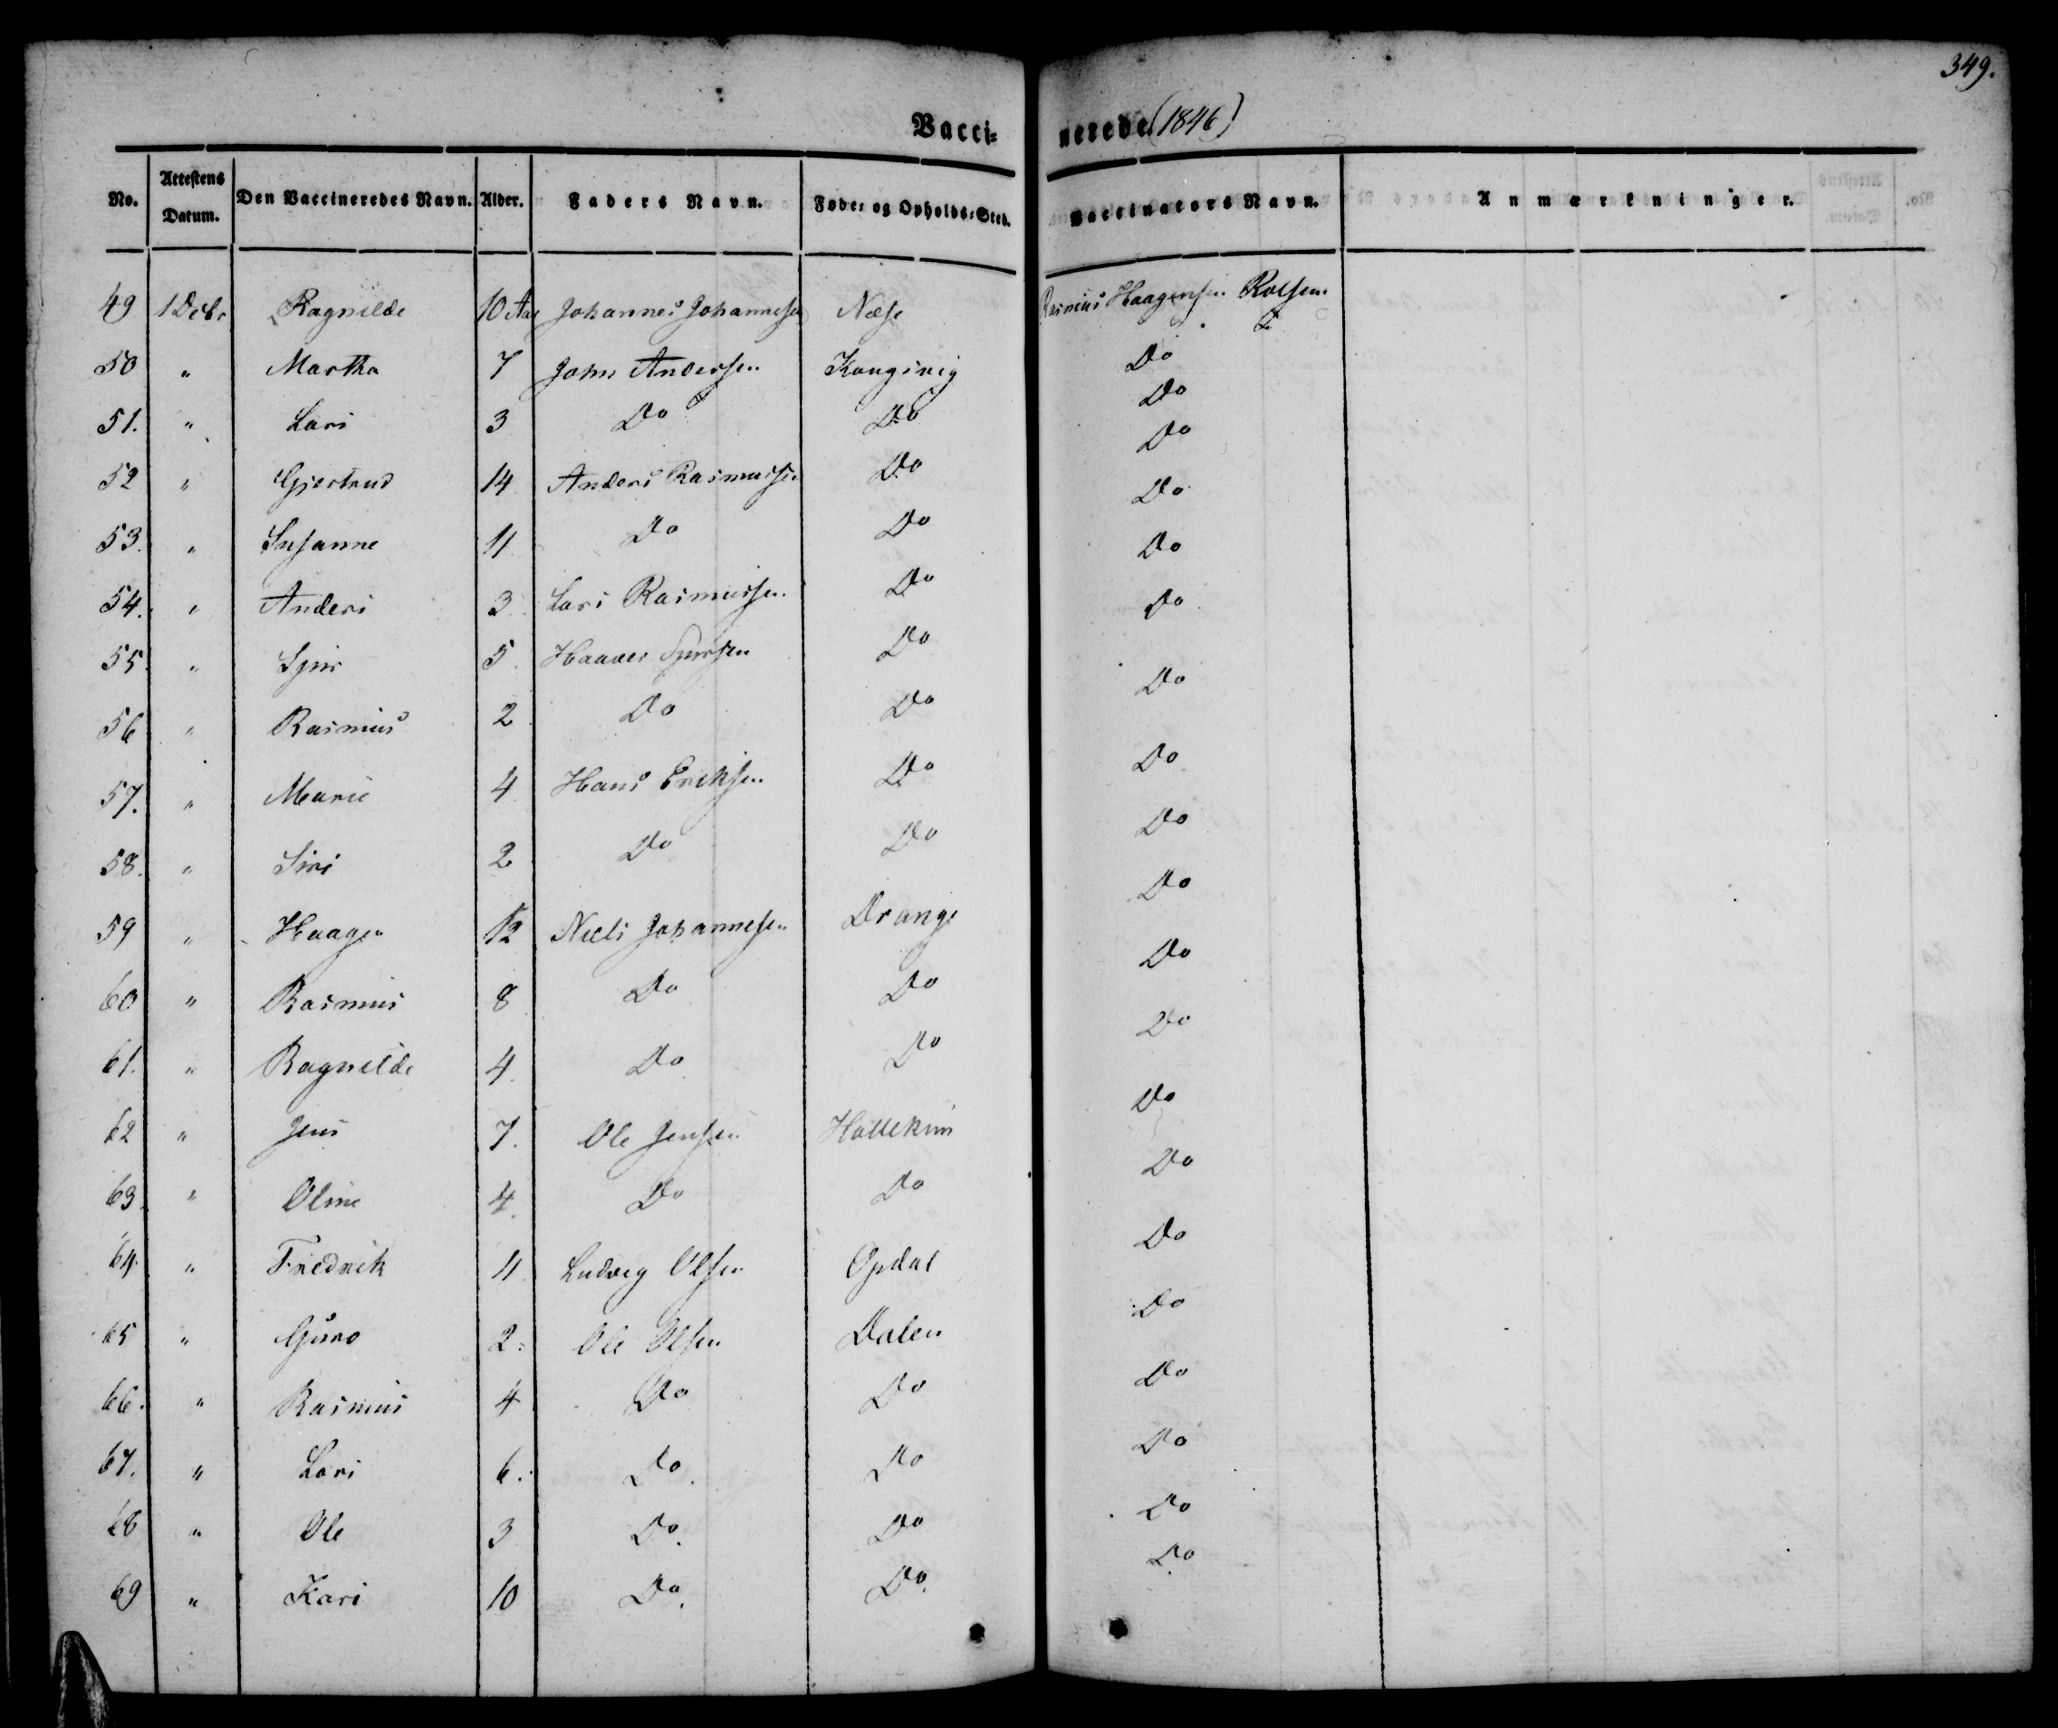 349.
Vaccinerede (1846)
No. Attestens Datum. Den Vaccineredes Navn. Alder. Faders Navn. Føde- og Opholds-Sted. Vaccinators Navn. Anmærkninger.
49 1 Decbr Ragnilde 10 Aar Johannes Johannesen Næse Rasmus Haagensen
50 " Martha 7 John Andersen Kongsvig Do
51. " Lars 3 Do Do Do
52 " Gjertrud 14 Anders Rasmussen Do Do
53. " Susanne 11 Do Do Do
54. " Anders 3 Lars Rasmussen Do Do
55. " Sjur 5. Haaver Sjursen Do Do
56 " Rasmus 2 Do Do Do
57. " Marie 4 Hans Eriksen Do Do
58. " Siri 2 Do Do Do
59 " Haagen 12 Niels Johannesen Drange Do
60 " Rasmus 8 Do Do Do
61. " Ragnilde 4. Do Do Do
62 " Jens 7. Ole Jensen Do
63. " Oline 4. Do Do Do
64. " Fredrik 11 Ludvig Olsen Opdal Do
65 " Guro 2. Ole Olsen Dalen Do
66. " Rasmus 4 Do Do Do
67. " Lars 6. Do. Do Do
68 " Ole 3 Do. Do Do
69 " Kari 10 Do. Do. Do